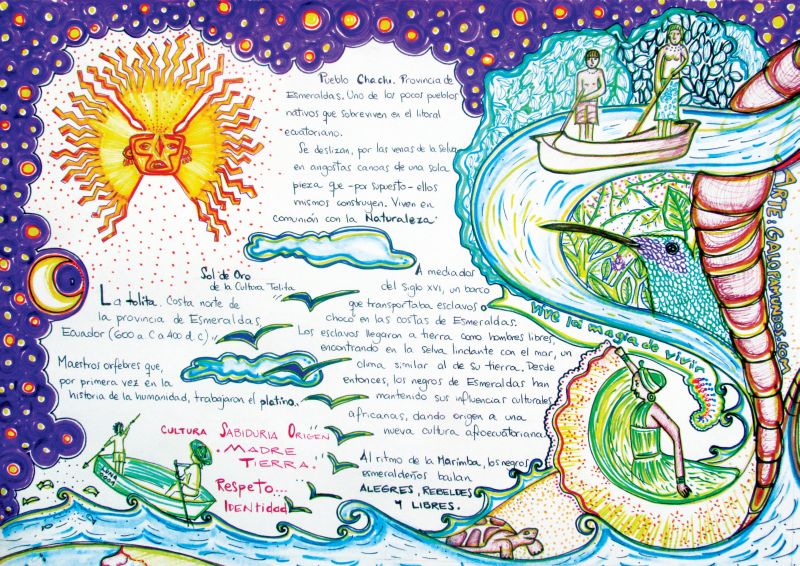 Pueblo Chachi. Provincia de
Esmeraldas. Uno de los pocos pueblos
nativos que sobreviven en el litoral
ecuatoriano.
Se deslizan, por las venas de la selva
en angostas canoas de una sola
pieza que - por supuesto - ellos
mismos construyen. Viven en
comunión con la Naturaleza.
Sol de Oro
de la Cultura Tolita
La tolita. Costa norte de
la provincia de Esmeraldas,
Ecuador (600 a C a 400 d. C)
Maestros orfebres que,
por primera vez en la
historia de la humanidad, trabajaron el platino.
A mediador
del siglo XVI, un barco
que transportaba esclavos
chocó en las costas de Esmeraldas.
Los esclavos llegaron a tierra como hombres libres,
encontrando en la selva lindante con el mar, un
clima similar al de su tierra. Desde
entonces, los negros de Esmeraldas han
mantenido sus influencias culturales
africanas, dando origen a una
nueva cultura afroecuatoriana.
Al ritmo de la Marimba, los negros
esmeraldeños bailan
ALEGRES, REBELDES
Y LIBRES.
CULTURA SABIDURIA ORIGEN
MADRE
TIERRA.
Respeto...
Identidad
Vive la magia de vivir
ARTE: GALOPAMUNDOS.COM